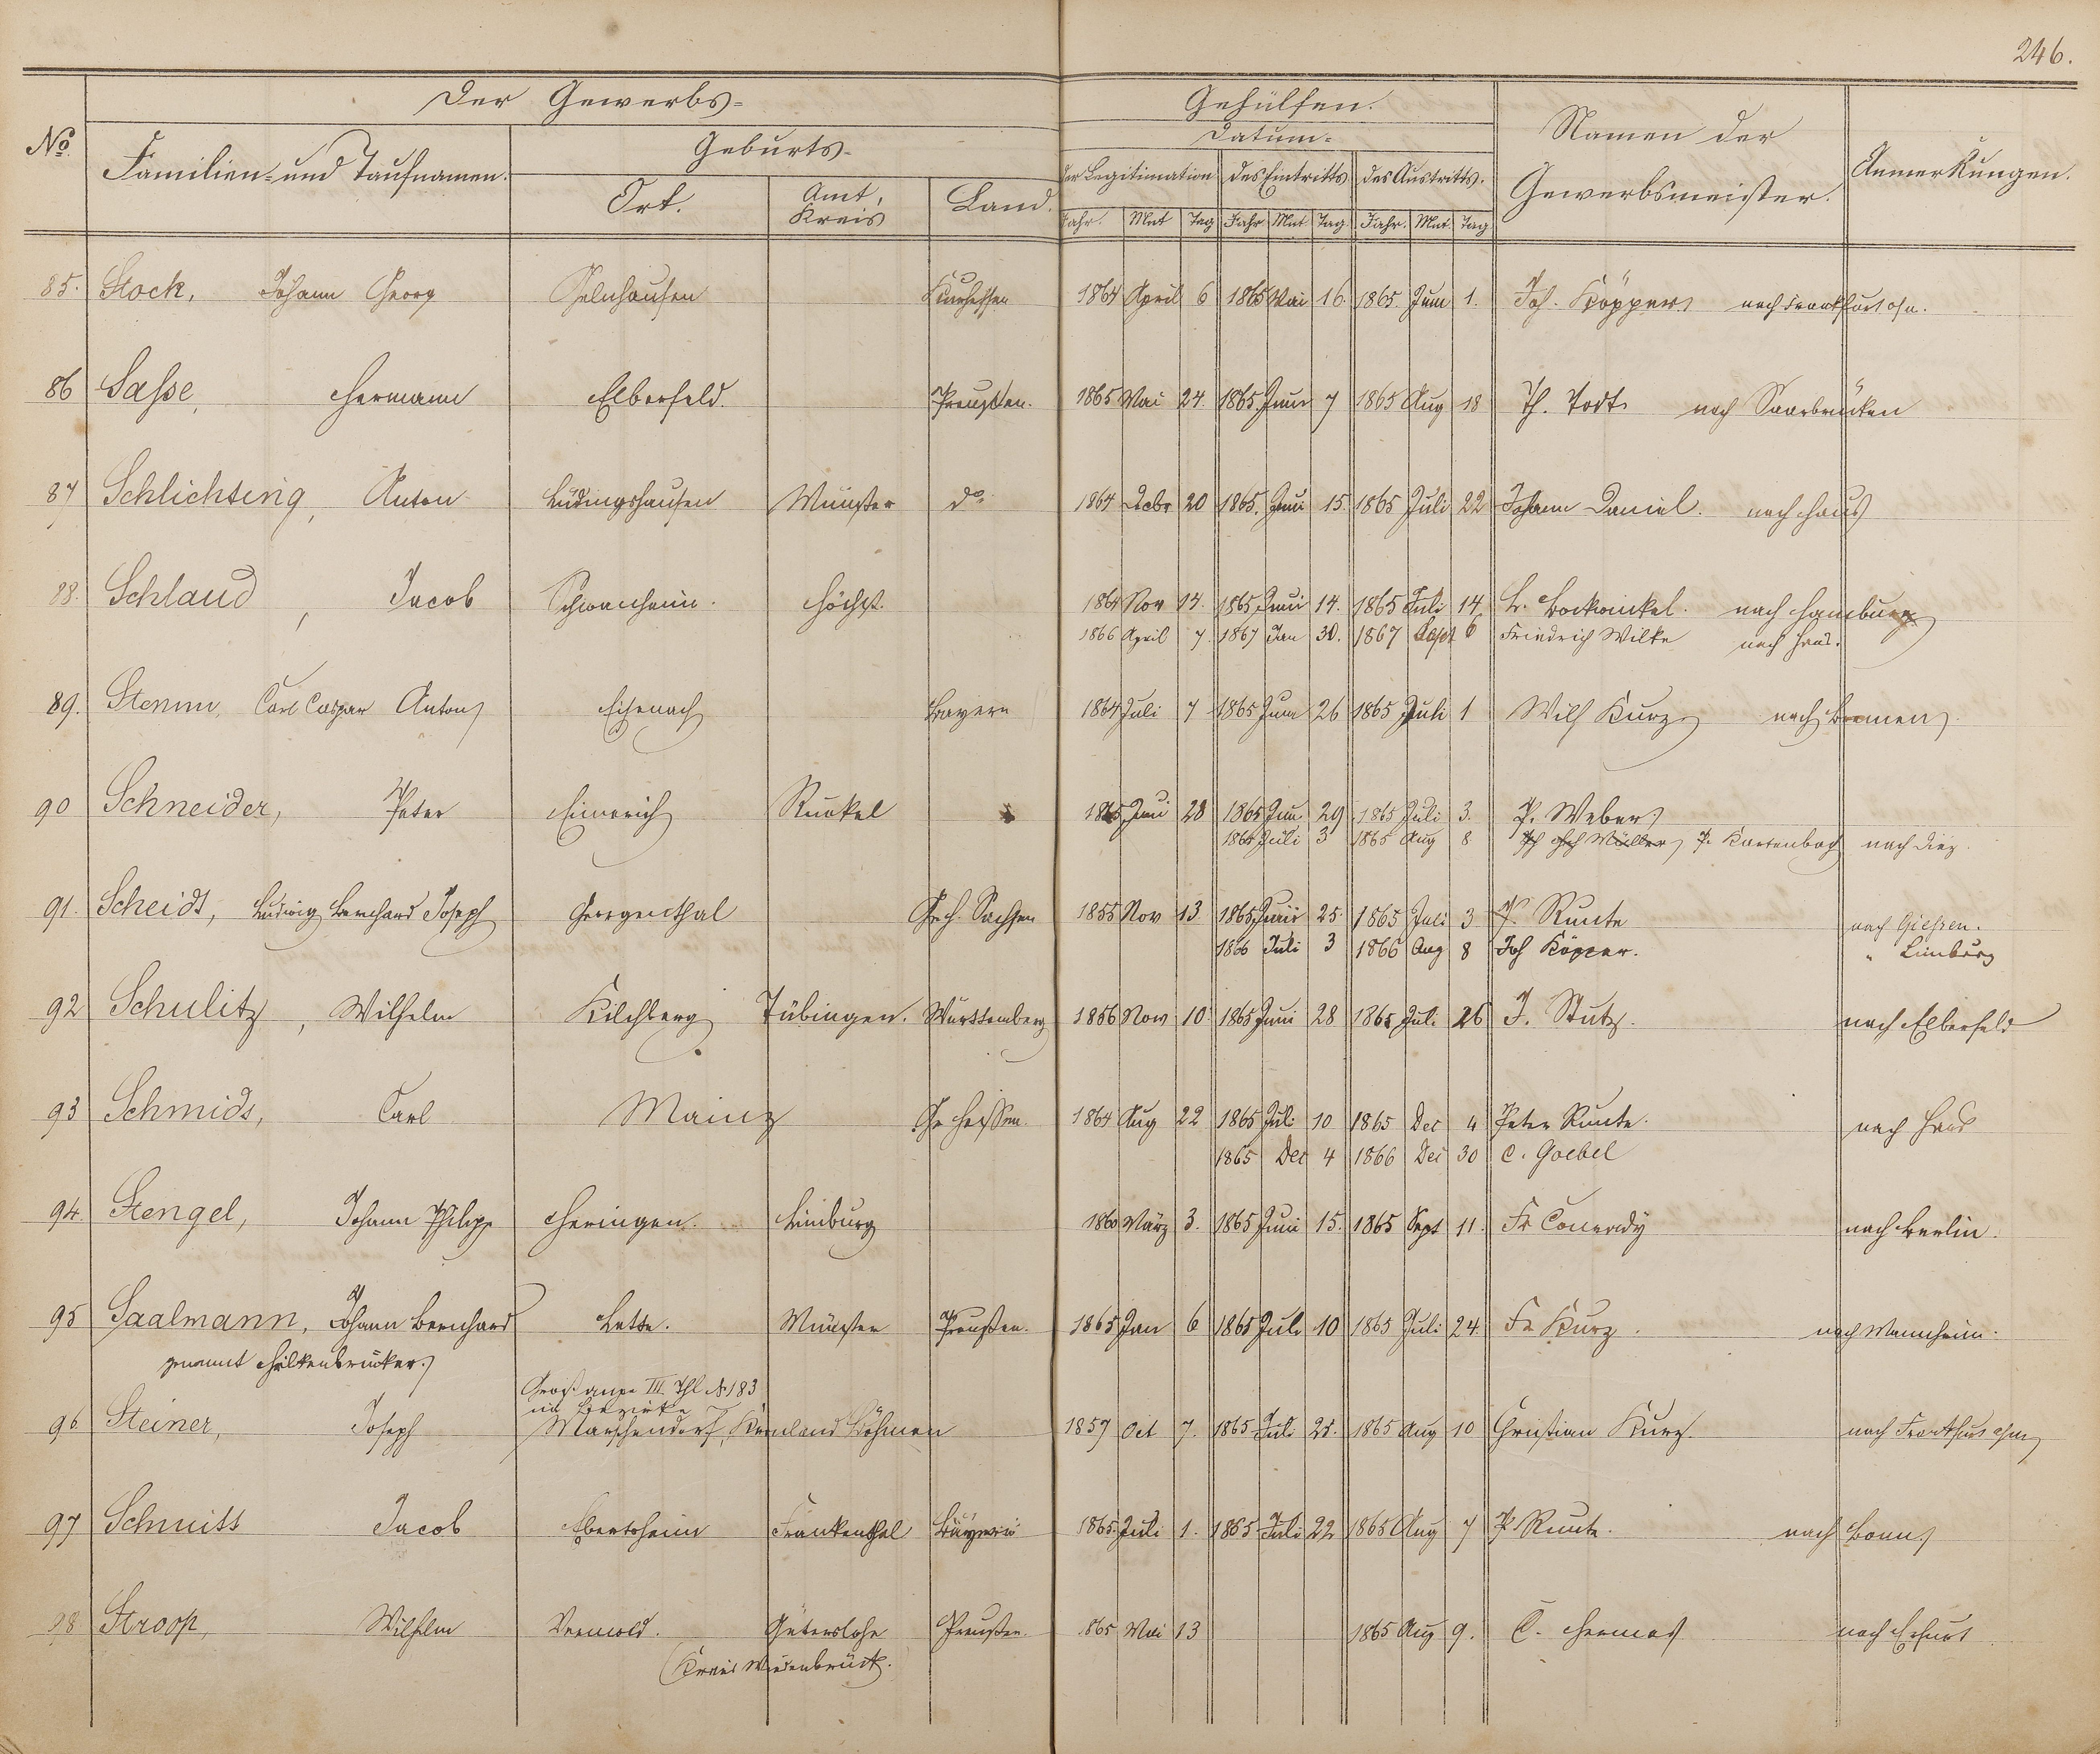 246.
Der Gewerbs= Gehülfen.
No. Familien- und Taufnamen. Geburts- Datum= Namen der Gewerbsmeister. Anmerkungen.
Ort. Amt, Kreis Land. der Legitimation des Eintritts des Austritts.
Jahr. Mnt Tag Jahr Mnt Tag Jahr. Mnt. Tag
85. Stock, Johann Georg Gelnhausen Kurhessen 1864 April 6 1865 Mai 16. 1865. Juni 1. Joh. Köpper nach Frankfurt a/m.
86 Saße, Hermann Elberfeld. Preußen. 1865 Mai 24. 1865. Juni 7 1865 Aug 18 Th. Todt nach Saarbrücken
87 Schlichting, Anton Lüdingshausen Münster do 1864 Dcbr 20 1865. Juni 15. 1865 Juli 22 Johann Daniel. nach Haus
88. Schlaud, Jacob Schwanheim. Höchst. 1864 Nov 14. 1865 Juni 14. 1865 Juli 14. L. Bockwinkel. nach Hamburg
1866 April 7. 1867 Jan 30. 1867 Sept 6 Friedrich Wilke nach Haus.
89. Stemm, Carl Caspar Anton Eisenach Bayern 1864 Juli 7 1865 Juni 26 1865 Juli 1 Wilh Kurz nach Bremen
90 Schneider, Peter Eimerich Runkel 1865 Juni 28 1865 Jun 29 1865 Juli 3. P. Weber
1865 Juli 3 1865 Aug 8. Müller P. Kartenbach nach Diez.
91. Scheidt, Ludwig Bernhard Joseph Georgenthal Sachsen 1855 Nov 13 1865 Juni 25. 1865 Juli 3 P. Runte nach Gießen.
1866 Juli 3 1866 Aug 8 Joh Köpper. " Limburg
92 Schulitz, Wilhelm Kilchberg Tübingen. Württemberg 1856 Nov 10 1865 Juni 28 1865 Juli 26 J. Stutz. nach Elberfeld
93 Schmidt, Carl Mainz Gr Hessen. 1864 Aug 22 1865 Juli 10 1865 Dec 4 Peter Runte. nach Haus
1865 Dec 4 1866 Dec 30 C. Goebel
94. Stengel, Johann Philipp Heringen. Limburg 1860 März 3. 1865 Juni 15. 1865 Sept 11. Fr Conrady nach Berlin.
95 Saalmann, Johann Bernhard Lette. Münster Preußen. 1865 Jan 6 1865 Juli 10 1865 Juli 24. Fr Kurz. nach Mannheim.
genannt Hilkenbrinker.
Groß aupa III. Thl No 183
im Bezirke
96. Steiner, Joseph Marschendorf, Kronland Böhmen 1857 Oct 7. 1865 Juli 25. 1865 Aug 10 Christian Kurz. nach Frankfurt a/m
97 Schmitt Jacob Ebertsheim Frankenthal Bayern 1865. Juli 1. 1865 Juli 22 1865 Aug 7 P. Runte. nach Bonn
98 Stroop, Wilhelm Vermold. Gütersloh Preußen. 1865 Mai 13 1865 Aug 9. C. Hermes nach Erfurt
(Kreis Wiedenbrück.